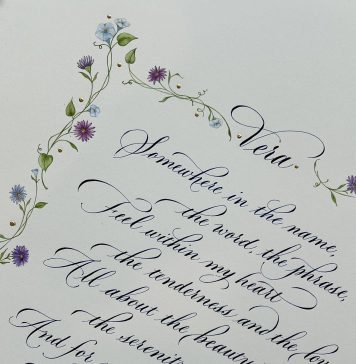 Vera
Somewhere in the name,
the word, the phrase,
Feel within my heart
the tenderness and the lov
All about the beauty
the serenit
And for a